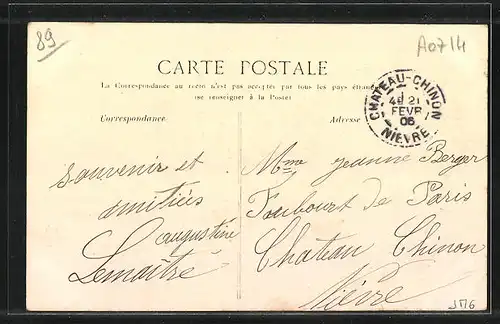 89
A0714
CARTE POSTALE
La Correspondance au recto n'est pas acceptée par tous les pays étrangers
(se renseigner à la Poste)
CHATEAU-CHINON
4E 21
FEVR
06
NIEVRE
Correspondance
Adresse
souvenir et
amitiés
augustine
Lemaître
Mme jeanne Berger
Foubourt de Paris
Chateau Chinon
Nièvre